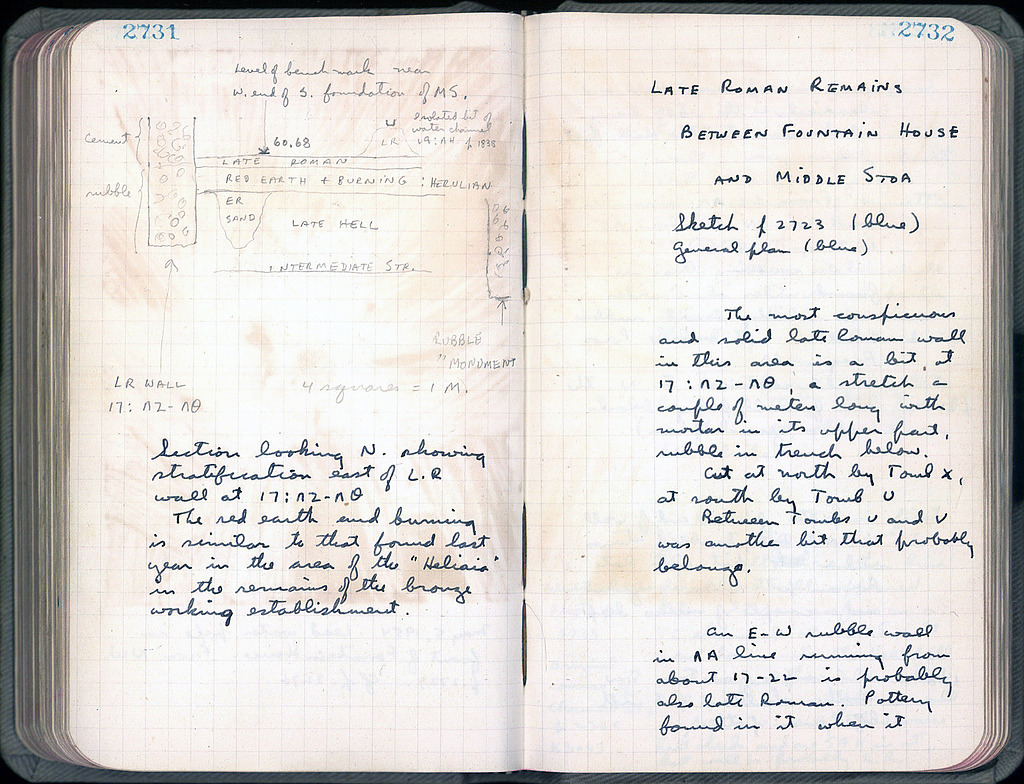 2731
Level of bench mark near
W. end of S. foundation of MS.
isolated bit of
water channel
U9:ΛH p 1838
LR
cement
60.68
LATE ROMAN
rubble
RED EARTH + BURNING : HERULIAN
ER
SAND
LATE HELL
INTERMEDIATE STR.
RUBBLE
"MONUMENT
LR WALL
17: ΛΖ-ΛΘ
4 squares = 1 M.
Section looking N. showing
stratification east of L.R
wall at 17: ΛΖ-ΛΘ
The red earth and burning
is similar to that found last
year in the area of the "Heliaia"
in the remains of the bronze
working establishment.
2732
LATE ROMAN REMAINS
BETWEEN FOUNTAIN HOUSE
AND MIDDLE STOA
Sketch p 2723 (blue)
General plan (blue)
The most conspicuous
and solid late Roman wall
in this area is a bit at
17: ΛΖ-ΛΘ, a stretch a
couple of meters long with
mortar in its upper part,
rubble in trench below.
Cut at north by Tomb X,
at south by Tomb U
Between Tombs U and V
was another bit that probably
belongs.
An E-W rubble wall
in ΛΑ line running from
about 17-22 is probably
also late Roman. Pottery
found in it when it